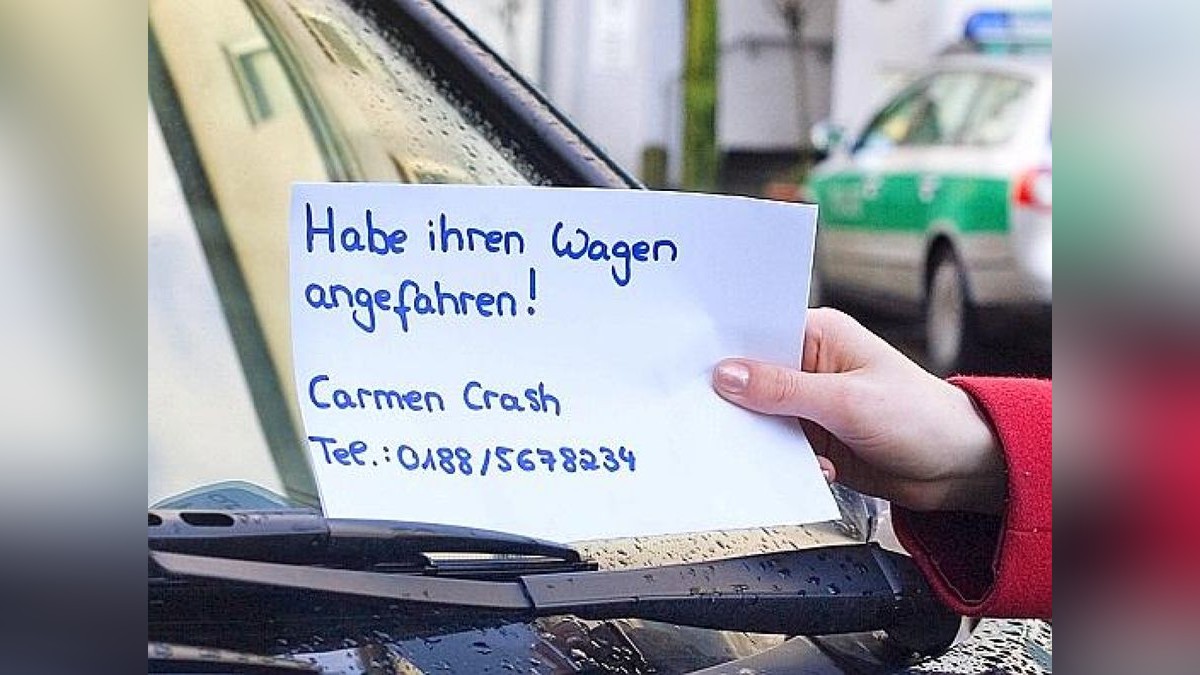 Habe ihren Wagen
angefahren!
Carmen Crash
Tel.: 0188/5678234